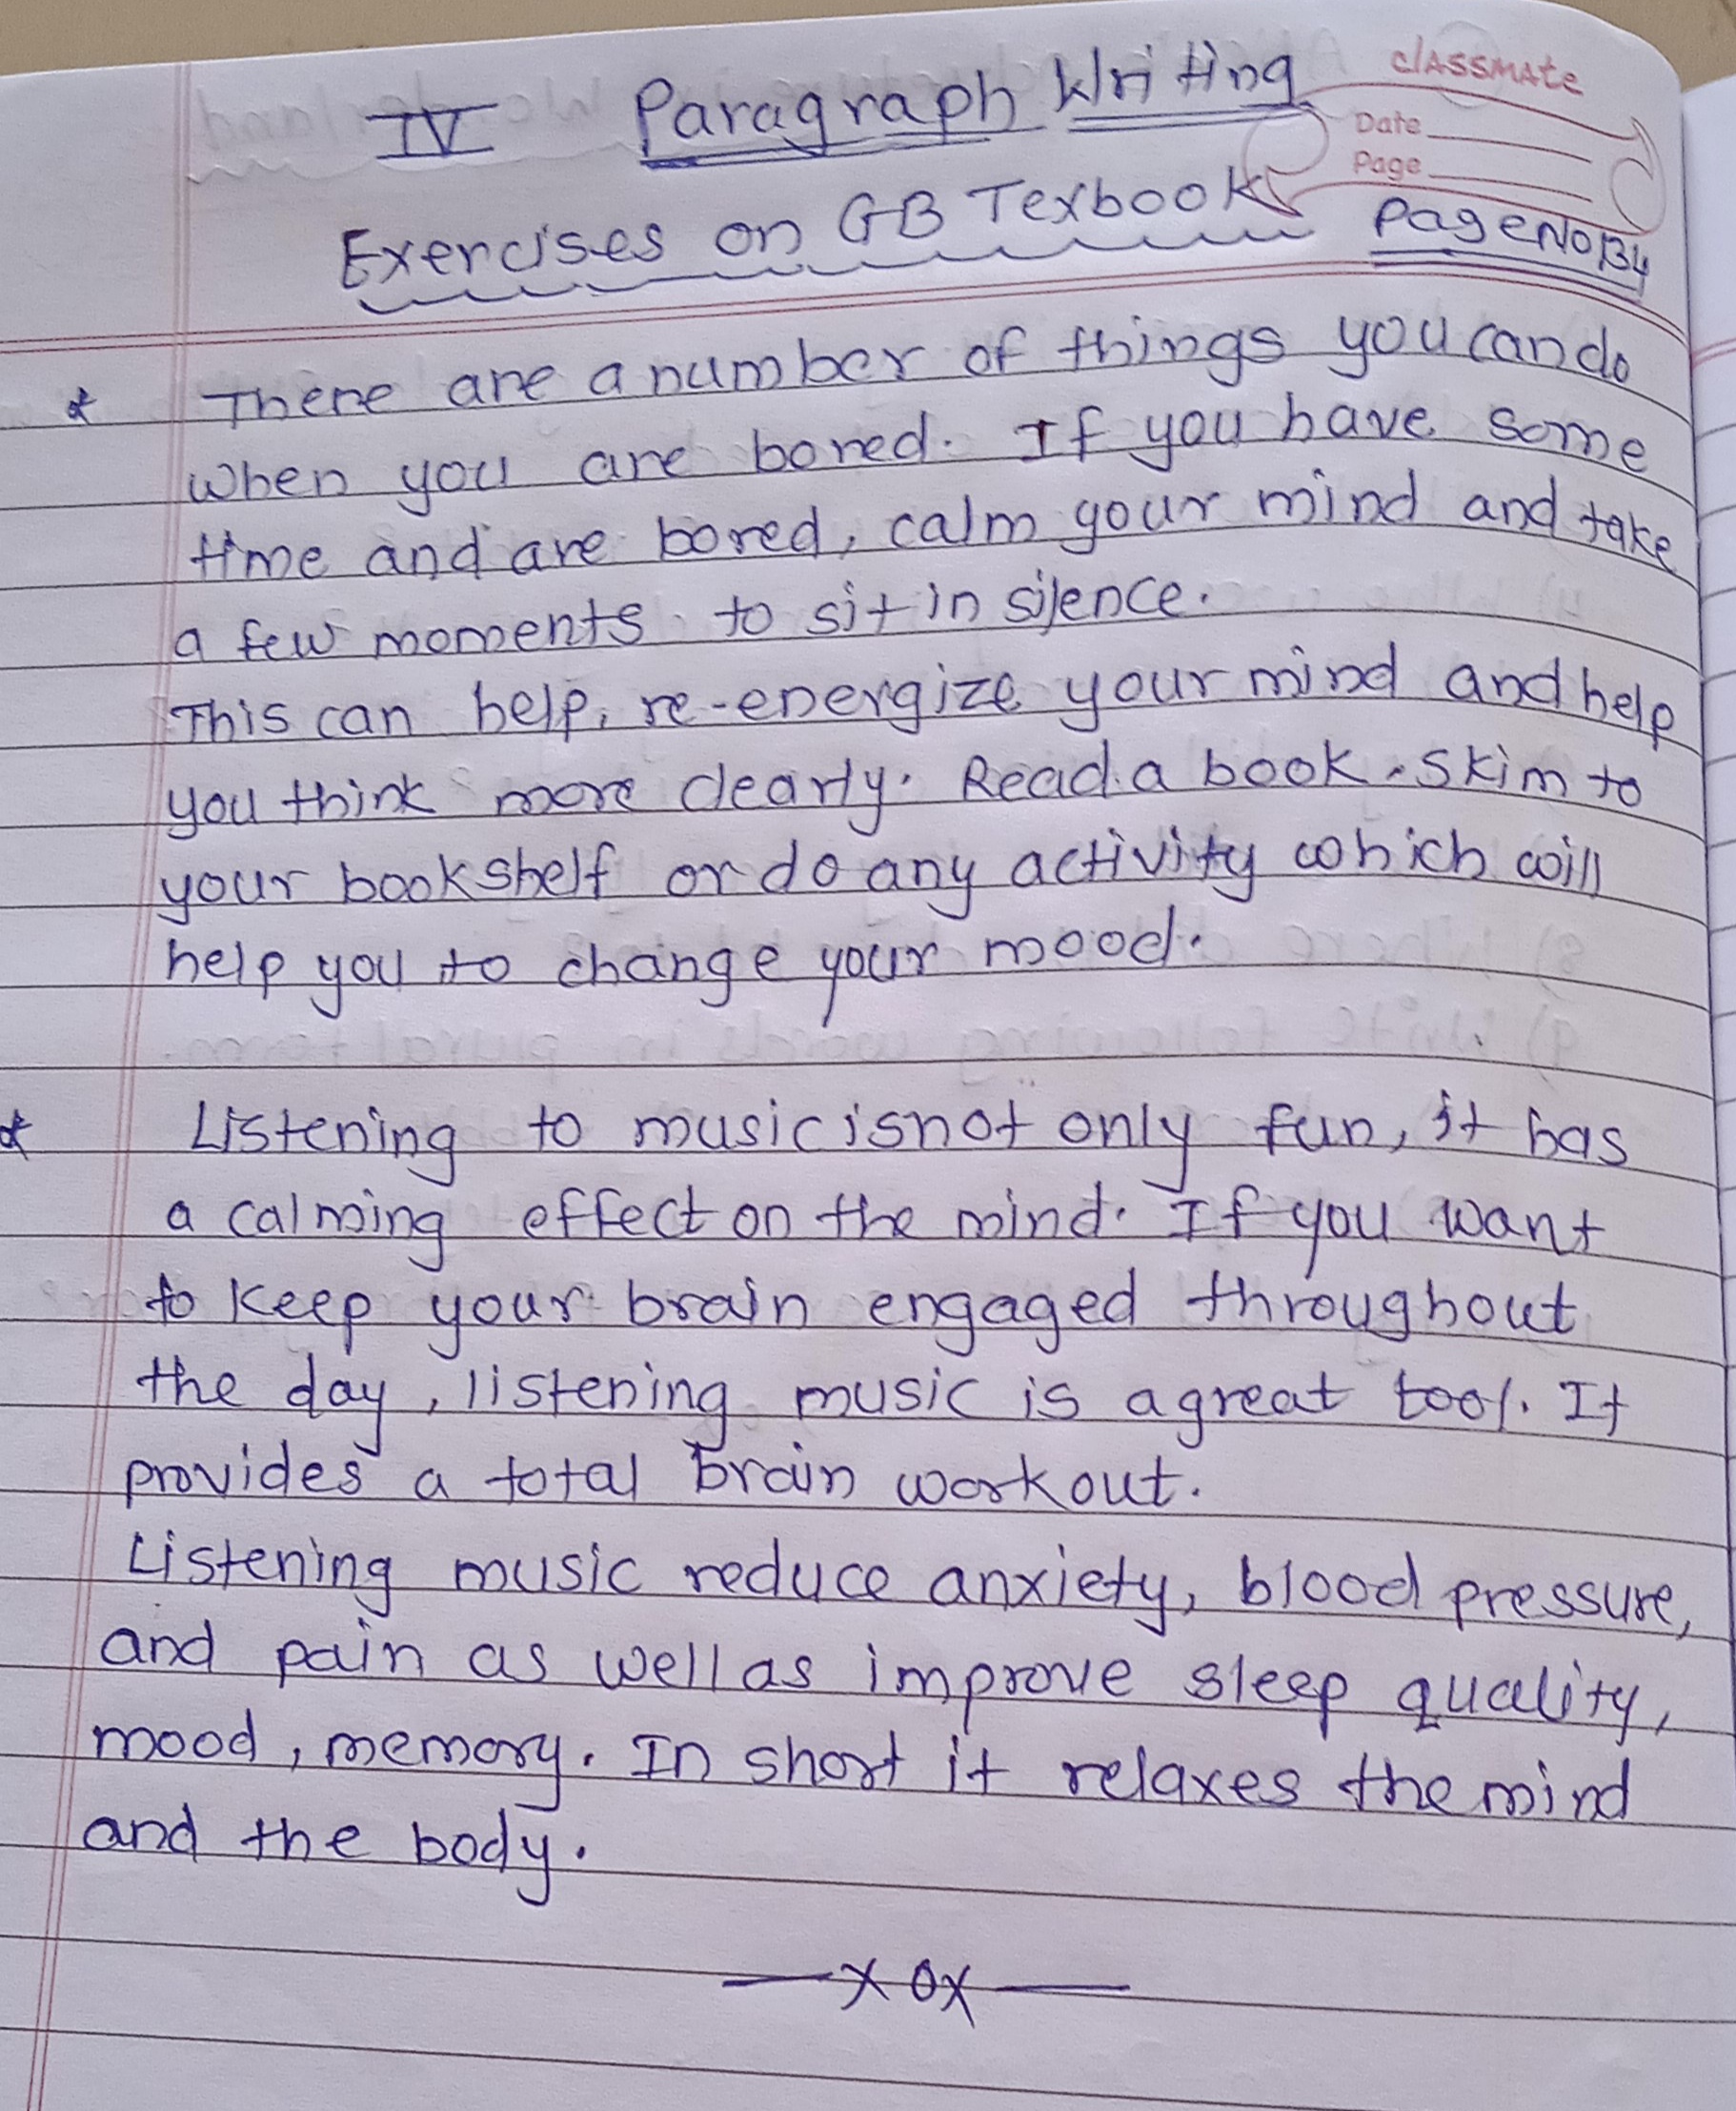 IV Paragraph Writing
classmate
Date
Page
Exercises on GB Texbook Page No 134
* There are a number of things you can do
when you are bored. If you have some
time and are bored, calm your mind and take
a few moments to sit in silence.
This can help, re-energize your mind and help
you think more clearly. Read a book. Skim to
your bookshelf or do any activity which will
help you to change your mood.
* Listening to music is not only fun, it has
a calming effect on the mind. If you want
to keep your brain engaged throughout
the day, listening music is a great tool. It
provides a total brain workout.
Listening music reduce anxiety, blood pressure,
and pain as well as improve sleep quality,
mood, memory. In short it relaxes the mind
and the body.
—x0x—